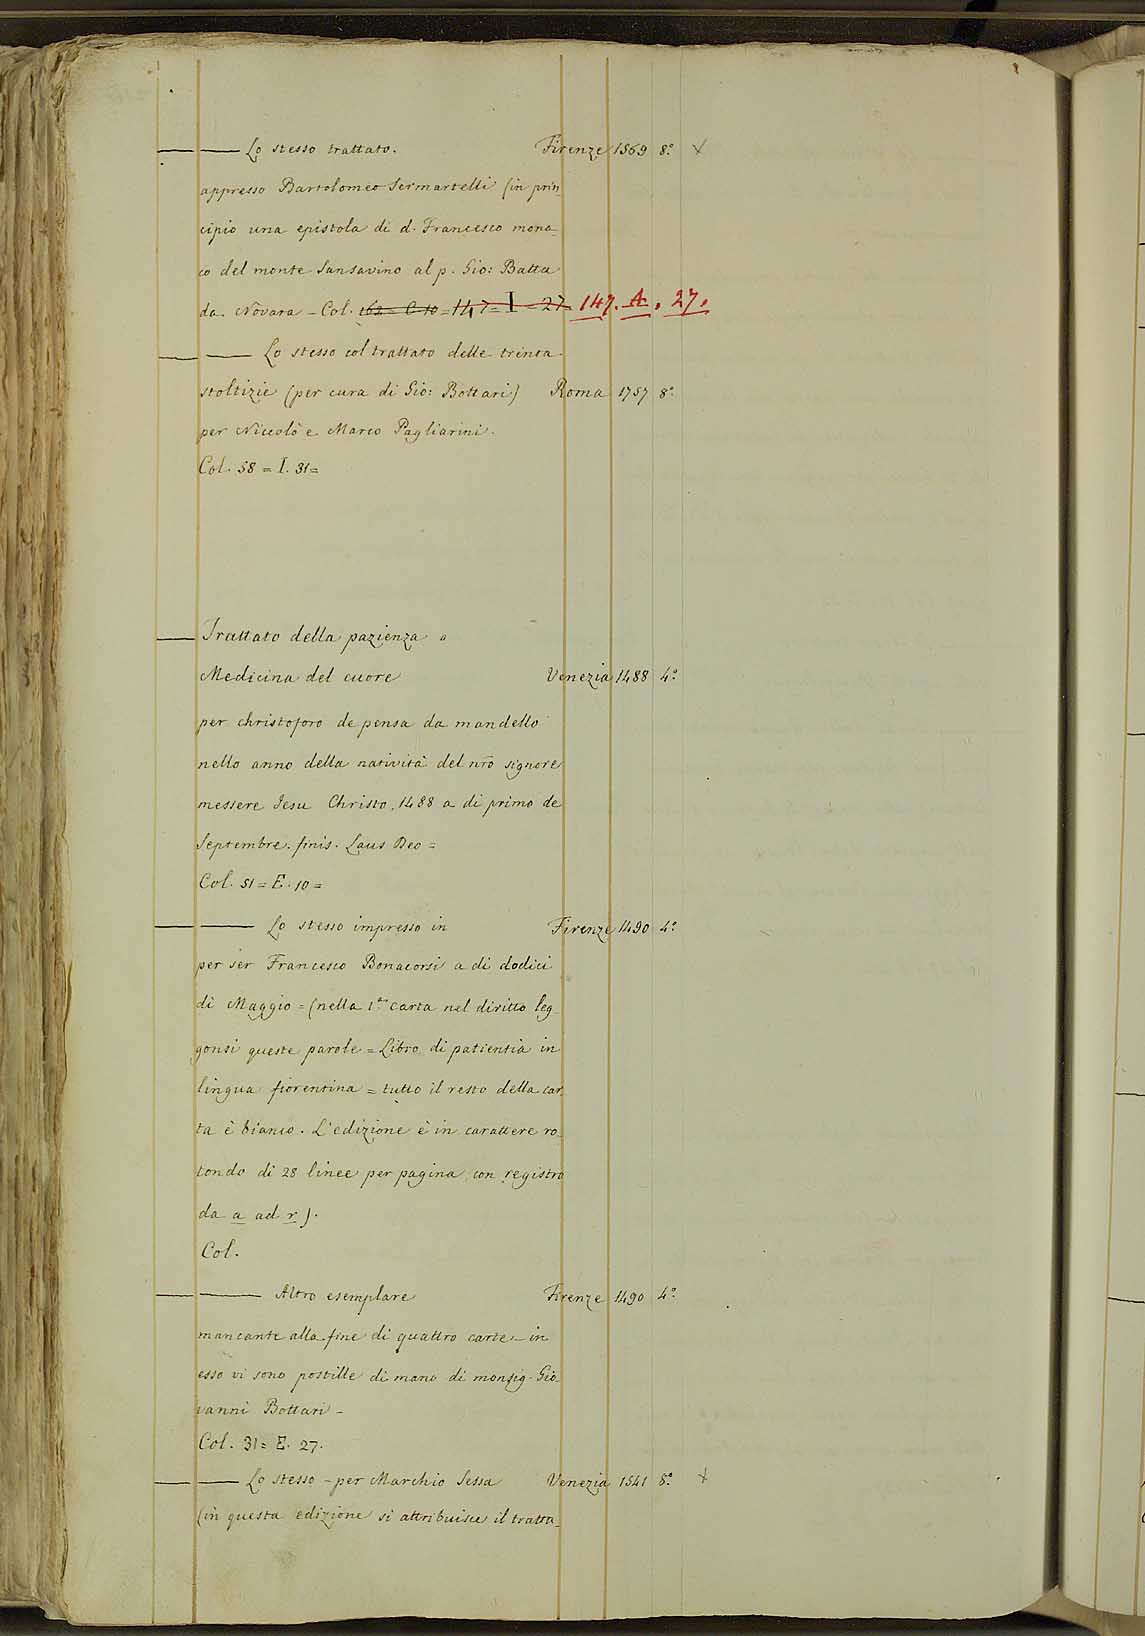 —— —— Lo stesso trattato. Firenze 1569 8.º ×
appresso Bartolomeo Sermartelli (in prin
cipio una epistola di d. Francesco mona_
co del monte Sansavino al p. Gio: Batta
da Novara – Col. 162 = C. 10 = 147 = I – 27. 147. A. 27.
—— —— Lo stesso col trattato delle trenta
stoltizie (per cura di Gio: Bottari) Roma 1757 8.º
per Niccolò e Marco Pagliarini.
Col. 58 = I. 31 =
—— Trattato della pazienza o
Medicina del cuore Venezia 1488 4.º
per christoforo de pensa da mandello
nello anno della natività del nr̄o signore
messere Jesu Christo, 1488 a di primo de
Septembre. finis. Laus Deo =
Col. 51 = E. 10 =
—— —— Lo stesso impresso in Firenze 1490 4.º
per ser Francesco Bonacorsi a di dodici
di Maggio = (nella 1.ª carta nel diritto leg_
gonsi queste parole = Libro di patientia in
lingua fiorentina = tutto il resto della car_
ta è bianco. L'edizione è in carattere ro_
tondo di 28 linee per pagina, con registro
da a ad r).
Col.
—— —— Altro esemplare Firenze 1490 4.º
mancante alla fine di quattro carte – in
esso vi sono postille di mano di monsig. Gio_
vanni Bottari –
Col. 31 = E. 27.
—— —— Lo stesso – per Marchio Sessa Venezia 1541 8.º ×
(in questa edizione si attribuisce il tratta_